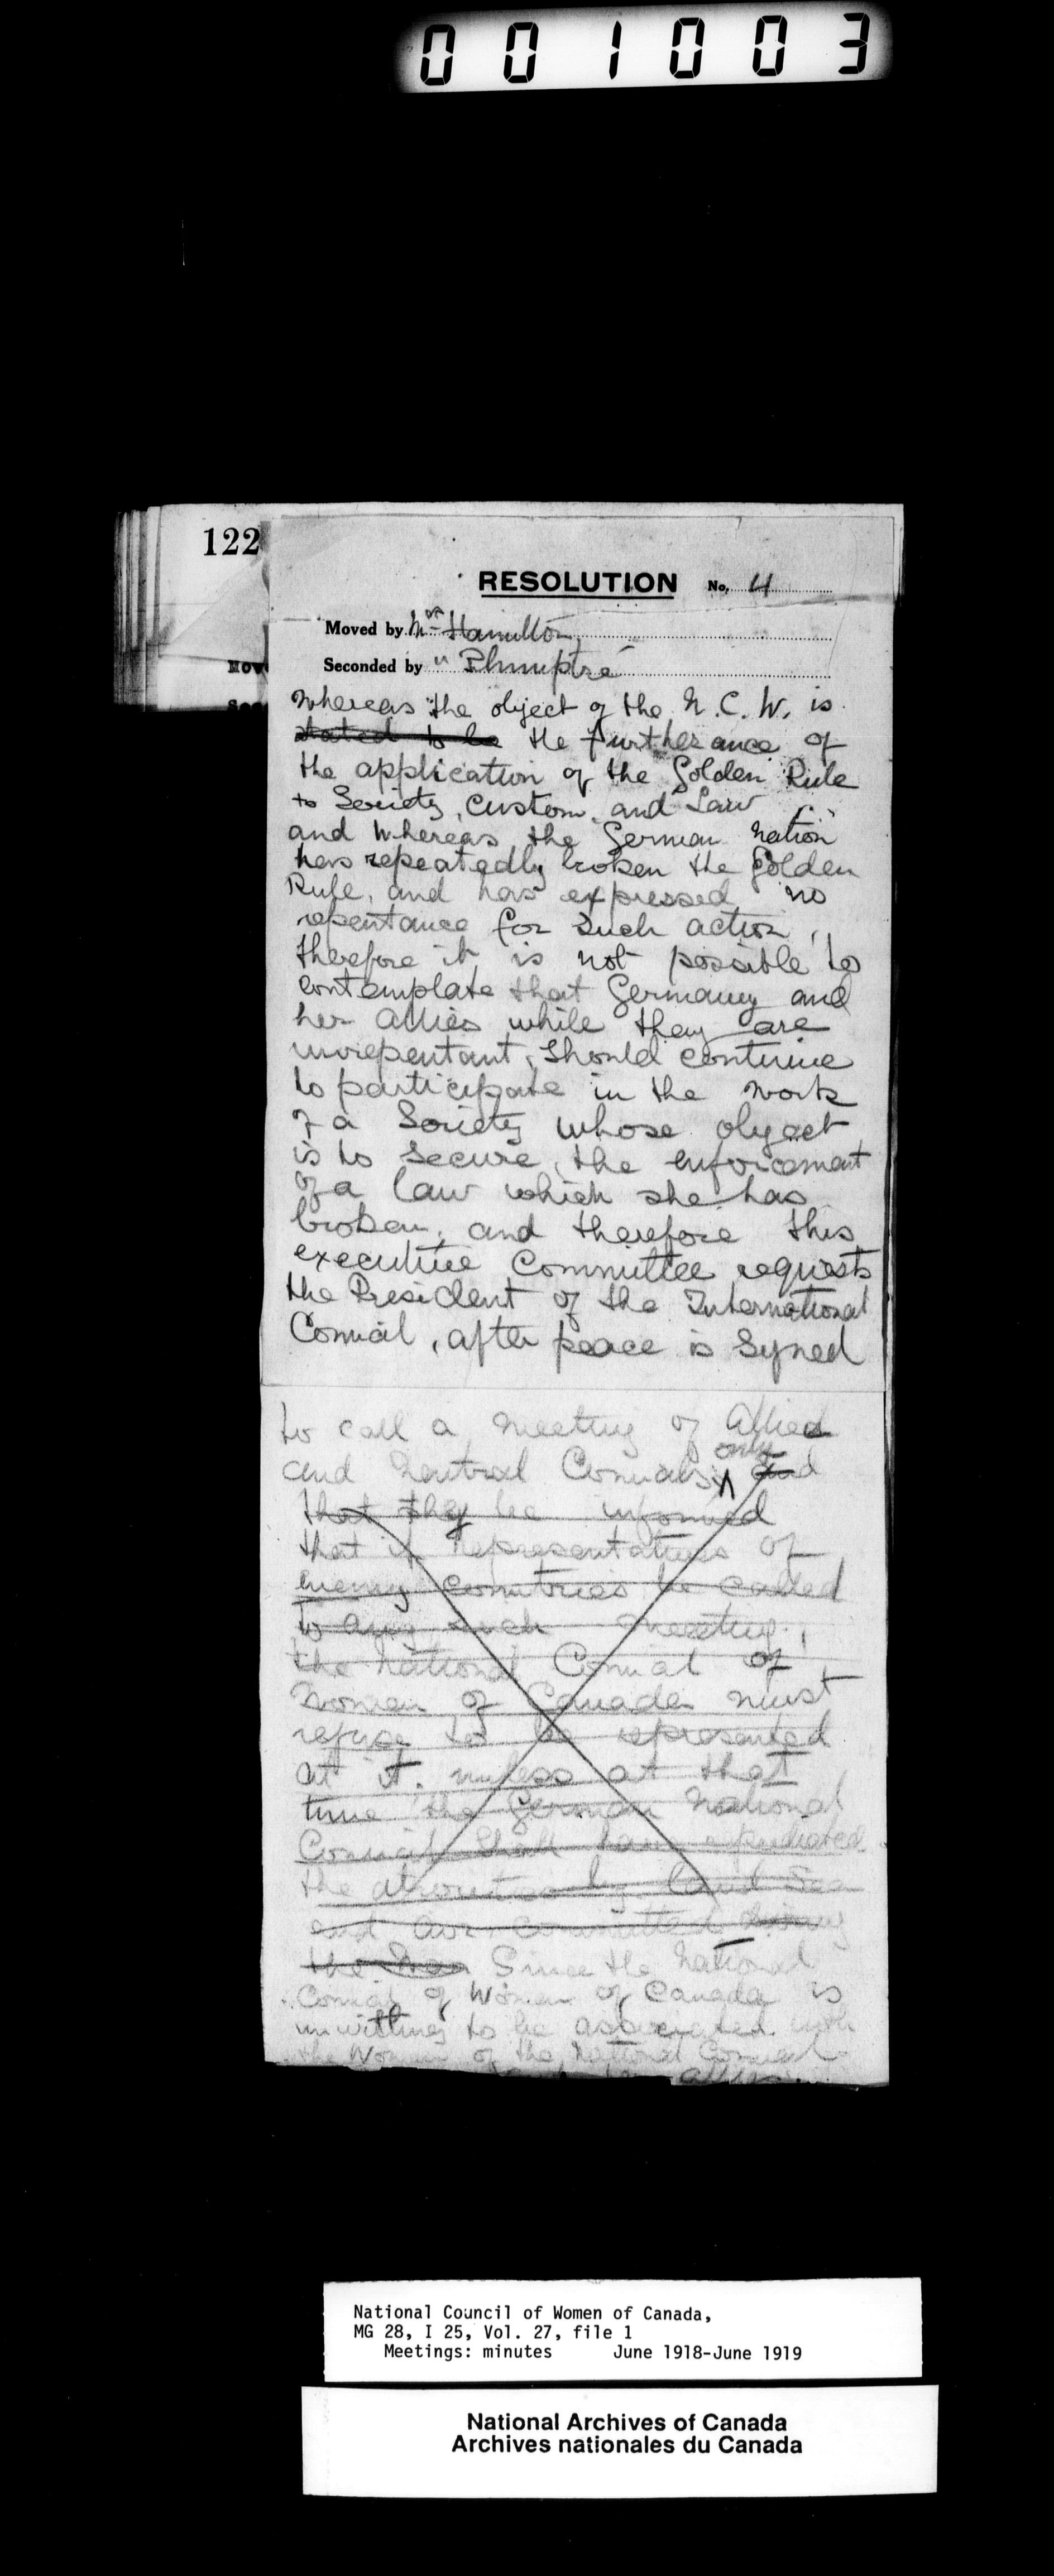 001003
122
RESOLUTION No. 4
Moved by Mrs Hamilton
Seconded by " Plumptre
Mov
Sec
Whereas the object of the N. C. W. is
stated to be the furtherance of
the application of the Golden Rule
to Society, Custom, and Law
and whereas the German nation
has repeatedly broken the Golden
Rule, and has expressed no
repentance for such action,
therefore it is not possible to
contemplate that Germany and
her allies while they are
unrepentant, should continue
to participate in the work
of a Society whose object
is to secure the enforcement
of a law which she has
broken, and therefore this
executive Committee requests
the President of the International
Council, after peace is signed
to call a meeting of Allied
only
and Neutral Councils, and
that they be informed
that if representatives of
enemy countries be called
to any such meeting,
the National Council of
Women of Canada must
refuse to be represented
at it. unless at that
time the German National
Council shall have repudiated
the atrocities by land sea
and air committed during
the War Since the National
Council of Women of Canada is
unwilling to be associated with
the Women of the National Council
allies
National Council of Women of Canada,
MG 28, I 25, Vol. 27, file 1
Meetings: minutes June 1918-June 1919
National Archives of Canada
Archives nationales du Canada